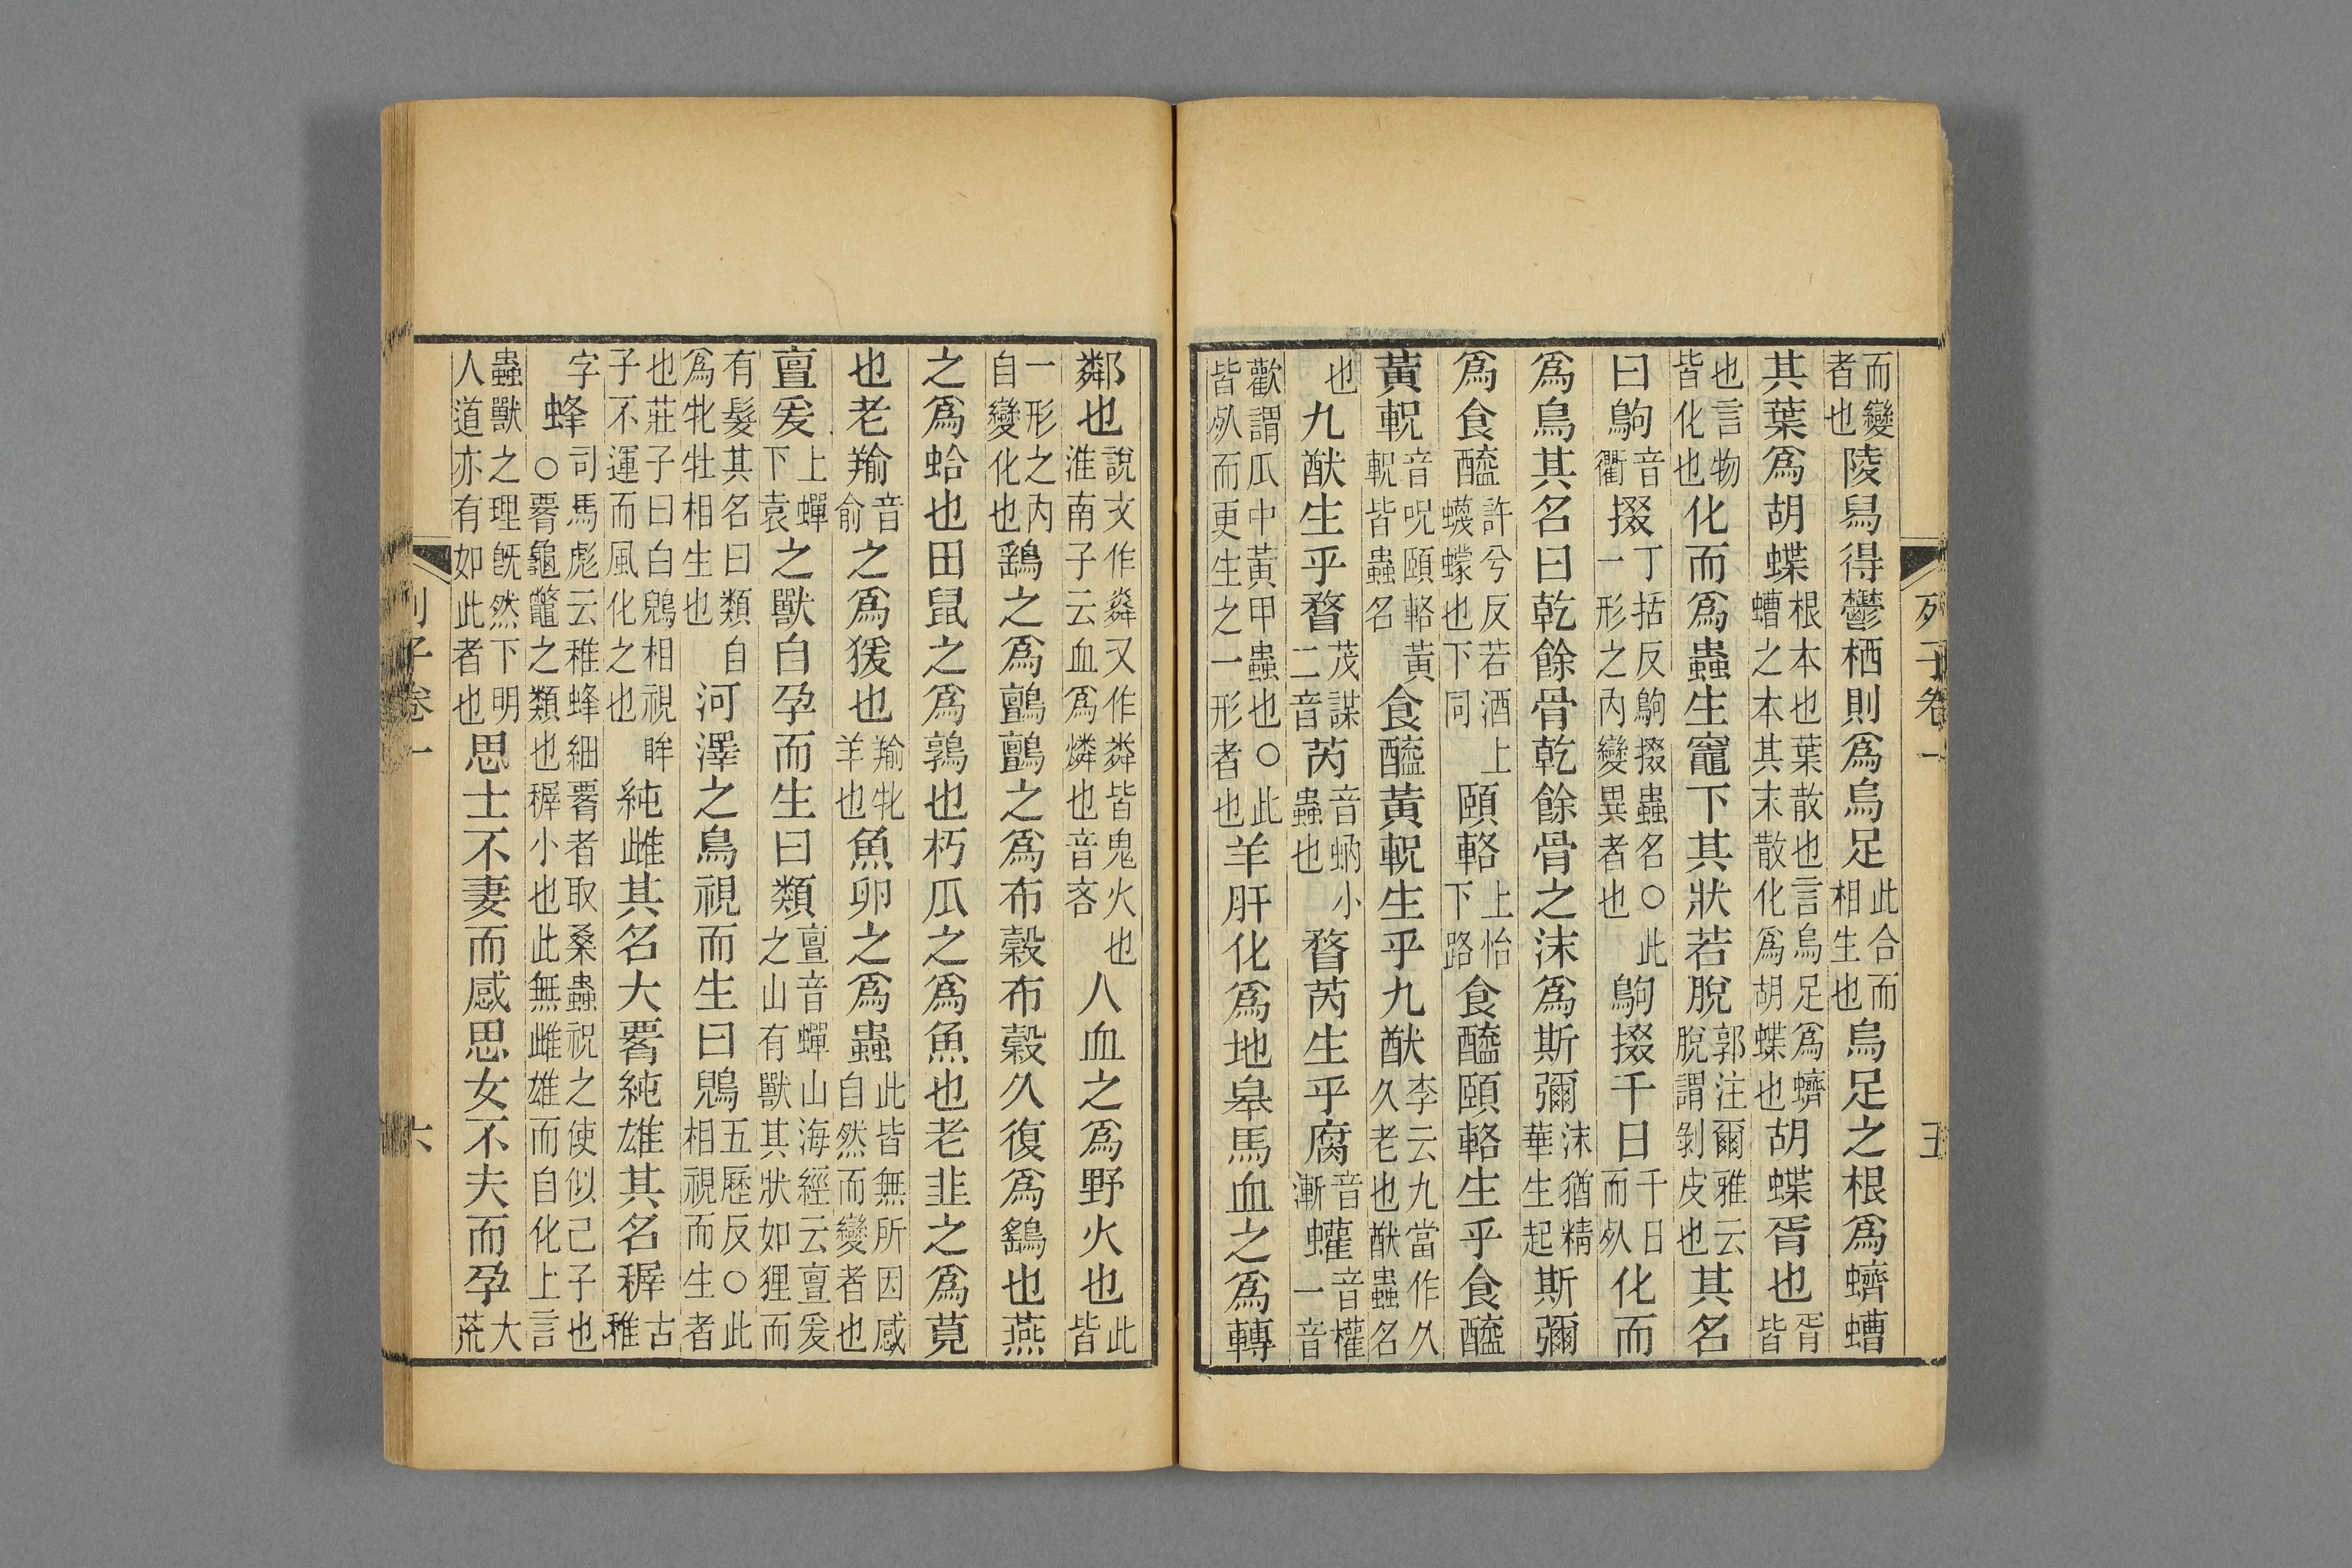 列子卷一
五
而變者也陵舄得鬱栖則爲烏足此合而相生也烏足之根爲蠐螬
其葉爲胡蝶根本也葉散也言烏足爲蠐螬之本其末散化爲胡蝶也胡蝶胥也胥皆
也言物皆化也化而爲蟲生竈下其狀若脫郭注爾雅云脫謂剝皮也其名
曰鴝音衢掇丁括反鴝掇蟲名○此一形之內變異者也鴝掇千日千日而𣦸化而
爲鳥其名曰乾餘骨乾餘骨之沫爲斯彌沫猶精華生起斯彌
爲食醯許兮反若酒上蠛蠓也下同頤輅上怡下路食醯頤輅生乎食醯
黃軦音呪頤輅黃軦皆蟲名食醯黃軦生乎九猷李云九當作久久老也猷蟲名
也九猷生乎瞀茂謀二音芮音蜹小蟲也瞀芮生乎腐音漸蠸音權一音
歡謂瓜中黃甲蟲也○此皆𣦸而更生之一形者也羊肝化爲地皋馬血之爲轉
鄰也說文作㷠又作粦皆鬼火也淮南子云血爲燐也音吝人血之爲野火也此皆
一形之內自變化也鷂之爲鸇鸇之爲布穀布穀久復爲鷂也燕
之爲蛤也田鼠之爲鶉也朽瓜之爲魚也老韭之爲莧
也老羭音俞之爲猨也羭牝羊也魚卵之爲蟲此皆無所因感自然而變者也
亶爰上蟬下袁之獸自孕而生曰類亶音蟬山海經云亶爰之山有獸其狀如狸而
有髮其名曰類自爲牝牡相生也河澤之鳥視而生曰鶂五歷反○此相視而生者
也莊子曰白鶂相視眸子不運而風化之也純雌其名大䐁純雄其名稺古稚
字蜂司馬彪云稚蜂細䐁者取桑蟲祝之使似己子也○䐁龜鼈之類也稺小也此無雌雄而自化上言
蟲獸之理旣然下明人道亦有如此者也思士不妻而感思女不夫而孕大荒
列子卷一
六